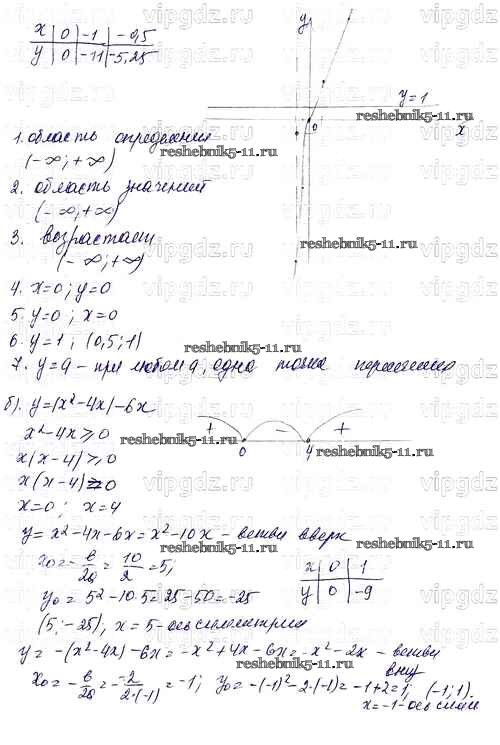 x | 0 | -1 | -0,5
y | 0 | -11 | -5,25
y
y=1
0
x
1. область определения
(-∞; +∞)
2. область значений
(-∞; +∞)
3. возрастает
(-∞; +∞)
4. x=0; y=0
5. y=0; x=0
6. y=1; (0,5; 1)
7. y=a - при любом a, одна точка пересечения
б). y=|x²-4x|-6x
x²-4x≥0
+ - +
0 4
x(x-4)≥0
x(x-4)=0
x=0; x=4
y=x²-4x-6x=x²-10x - ветви вверх
x₀=-в/2a=10/2=5;
x | 0 | 1
y | 0 | -9
y₀=5²-10·5=25-50=-25
(5; -25), x=5 - ось симметрии
y=-(x²-4x)-6x=-x²+4x-6x=-x²-2x - ветви
вниз
x₀=-в/2a=-(-2)/(2·(-1))=-1; y₀=-(-1)²-2·(-1)=-1+2=1; (-1; 1).
x=-1 - ось симм
vipgdz.ru
reshebnik5-11.ru